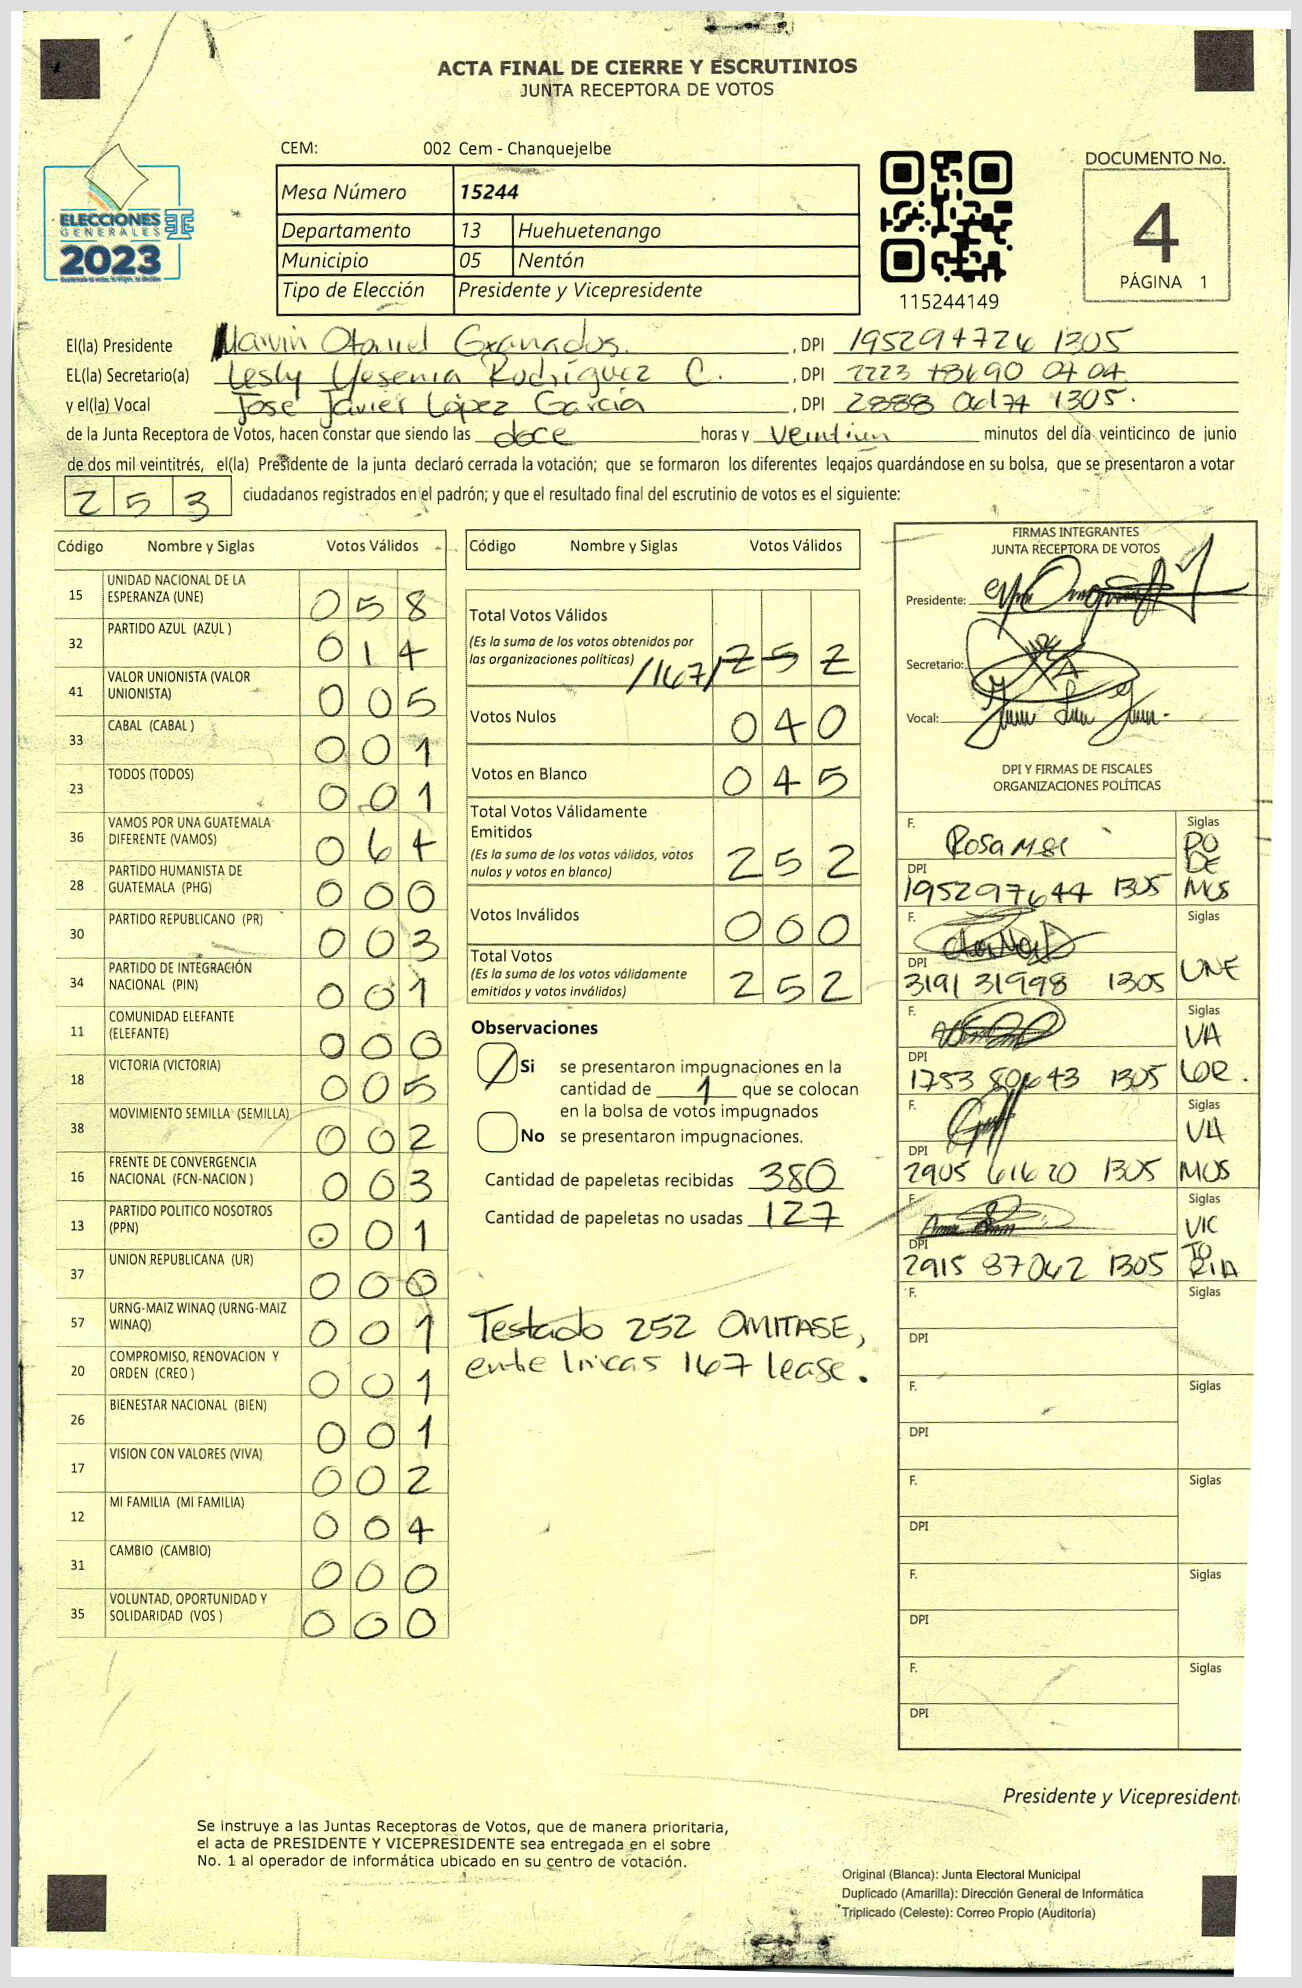 ACTA FINAL DE CIERRE Y ESCRUTINIOS
JUNTA RECEPTORA DE VOTOS
CEM: 002 Cem - Chanquejelbe
Mesa Número 15244
Departamento 13 Huehuetenango
Municipio 05 Nentón
Tipo de Elección Presidente y Vicepresidente
ELECCIONES
GENERALES
2023
115244149
DOCUMENTO No.
4
PÁGINA 1
El(la) Presidente Marvin Otoniel Granados. , DPI 195294726 1305
EL(la) Secretario(a) Lesly Yesenia Rodríguez C. , DPI 2223 78690 0404
y el(la) Vocal Jose Javier López García , DPI 2888 06174 1305.
de la Junta Receptora de Votos, hacen constar que siendo las doce horas y veintiun minutos del día veinticinco de junio
de dos mil veintitrés, el(la) Presidente de la junta declaró cerrada la votación; que se formaron los diferentes legajos guardándose en su bolsa, que se presentaron a votar
253 ciudadanos registrados en el padrón; y que el resultado final del escrutinio de votos es el siguiente:
Código Nombre y Siglas Votos Válidos
15 UNIDAD NACIONAL DE LA
ESPERANZA (UNE) 058
32 PARTIDO AZUL (AZUL ) 014
41 VALOR UNIONISTA (VALOR
UNIONISTA) 005
33 CABAL (CABAL ) 001
23 TODOS (TODOS) 001
36 VAMOS POR UNA GUATEMALA
DIFERENTE (VAMOS) 064
28 PARTIDO HUMANISTA DE
GUATEMALA (PHG) 000
30 PARTIDO REPUBLICANO (PR) 003
34 PARTIDO DE INTEGRACIÓN
NACIONAL (PIN) 001
11 COMUNIDAD ELEFANTE
(ELEFANTE) 000
18 VICTORIA (VICTORIA) 005
38 MOVIMIENTO SEMILLA (SEMILLA) 002
16 FRENTE DE CONVERGENCIA
NACIONAL (FCN-NACION ) 003
13 PARTIDO POLITICO NOSOTROS
(PPN) 001
37 UNION REPUBLICANA (UR) 000
57 URNG-MAIZ WINAQ (URNG-MAIZ
WINAQ) 001
20 COMPROMISO, RENOVACION Y
ORDEN (CREO ) 001
26 BIENESTAR NACIONAL (BIEN) 001
17 VISION CON VALORES (VIVA) 002
12 MI FAMILIA (MI FAMILIA) 004
31 CAMBIO (CAMBIO) 000
35 VOLUNTAD, OPORTUNIDAD Y
SOLIDARIDAD (VOS ) 000
Código Nombre y Siglas Votos Válidos
Total Votos Válidos
(Es la suma de los votos obtenidos por
las organizaciones políticas) /167/ 252
Votos Nulos 040
Votos en Blanco 045
Total Votos Válidamente
Emitidos
(Es la suma de los votos válidos, votos
nulos y votos en blanco) 252
Votos Inválidos 000
Total Votos
(Es la suma de los votos válidamente
emitidos y votos inválidos) 252
Observaciones
Si se presentaron impugnaciones en la
cantidad de 1 que se colocan
en la bolsa de votos impugnados
No se presentaron impugnaciones.
Cantidad de papeletas recibidas 380
Cantidad de papeletas no usadas 127
Testado 252 OMITASE,
entre lineas 167 lease.
FIRMAS INTEGRANTES
JUNTA RECEPTORA DE VOTOS
Presidente:
Secretario:
Vocal:
DPI Y FIRMAS DE FISCALES
ORGANIZACIONES POLÍTICAS
F. Rosa Siglas
PO
DE
MOS
DPI
195297644 1305
F. Siglas
UNE
DPI
3191 31998 1305
F. Siglas
VA
LOR.
DPI
1753 80643 1305
F. Siglas
VA
MOS
DPI
2905 61620 1305
F. Siglas
VIC
TO
RIA
DPI
2915 87042 1305
F. Siglas
DPI
F. Siglas
DPI
F. Siglas
DPI
F. Siglas
DPI
F. Siglas
DPI
Presidente y Vicepresident
Se instruye a las Juntas Receptoras de Votos, que de manera prioritaria,
el acta de PRESIDENTE Y VICEPRESIDENTE sea entregada en el sobre
No. 1 al operador de informática ubicado en su centro de votación.
Original (Blanca): Junta Electoral Municipal
Duplicado (Amarilla): Dirección General de Informática
Triplicado (Celeste): Correo Propio (Auditoría)